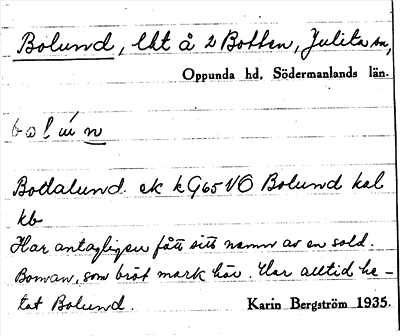 Bolund, lht å 2 Botten, Julita sn,
Oppunda hd, Södermanlands län.
bolun
Bodalund ek kG65VÖ Bolund kal
kb
Har antagligen fått sitt namn av en sold.
Boman, som bröt mark här. Har alltid he-
tat Bolund. Karin Bergström 1935.